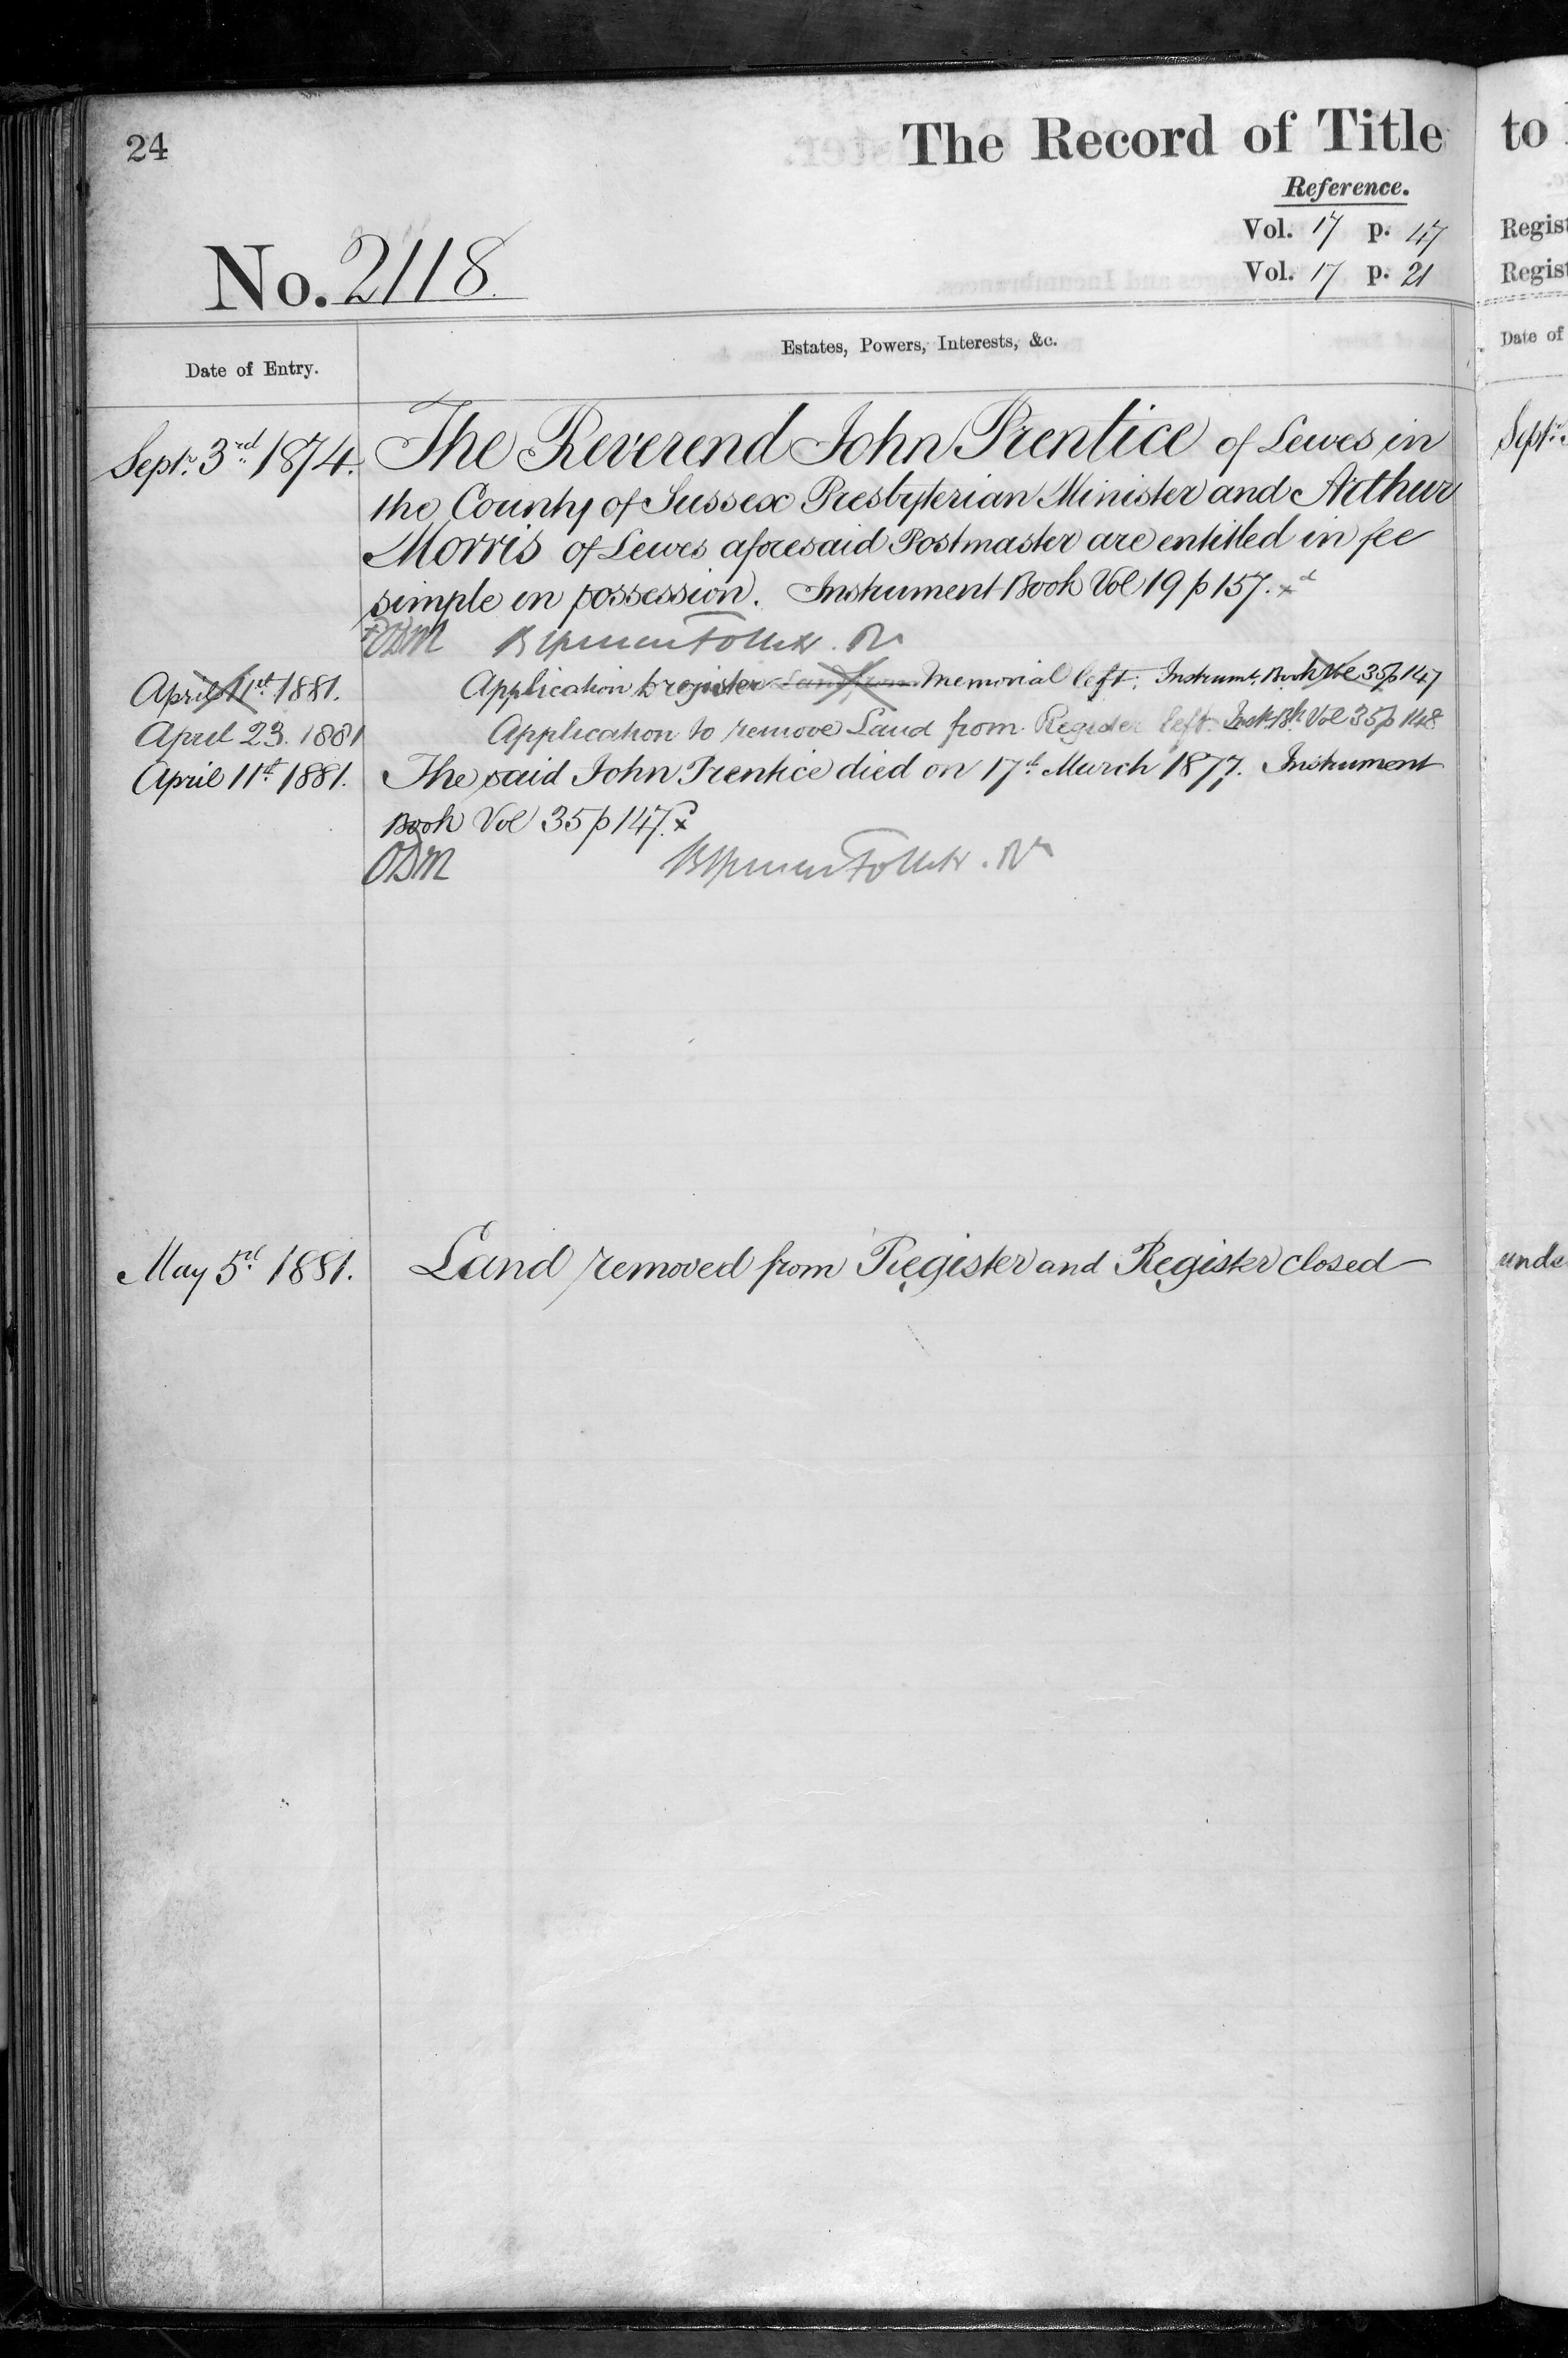 24
The Record of Title
Reference.
Vol. 17 p. 47
Vol. 17 p. 21
No. 2118.
Date of Entry.
Estates, Powers, Interests, &c.
Septr. 3rd 1874. The Reverend John Prentice of Lewes in
the County of Sussex Presbyterian Minister and Arthur
Morris of Lewes aforesaid Postmaster are entitled in fee
simple in possession. Instrument Book Vol 19 p 157.
ODM
April 11th 1881. Application to register Land from Memorial left. Instrumt. Book Vol 35 p 147
April 23. 1881 Application to remove Land from Register left. Inst. Bk. Vol 35 p 148
April 11th 1881. The said John Prentice died on 17th March 1877. Instrument
Book Vol 35 p 147.
ODM
May 5th 1881. Land removed from Register and Register closed
to
Regist
Regist
Date of
Septr.
unde